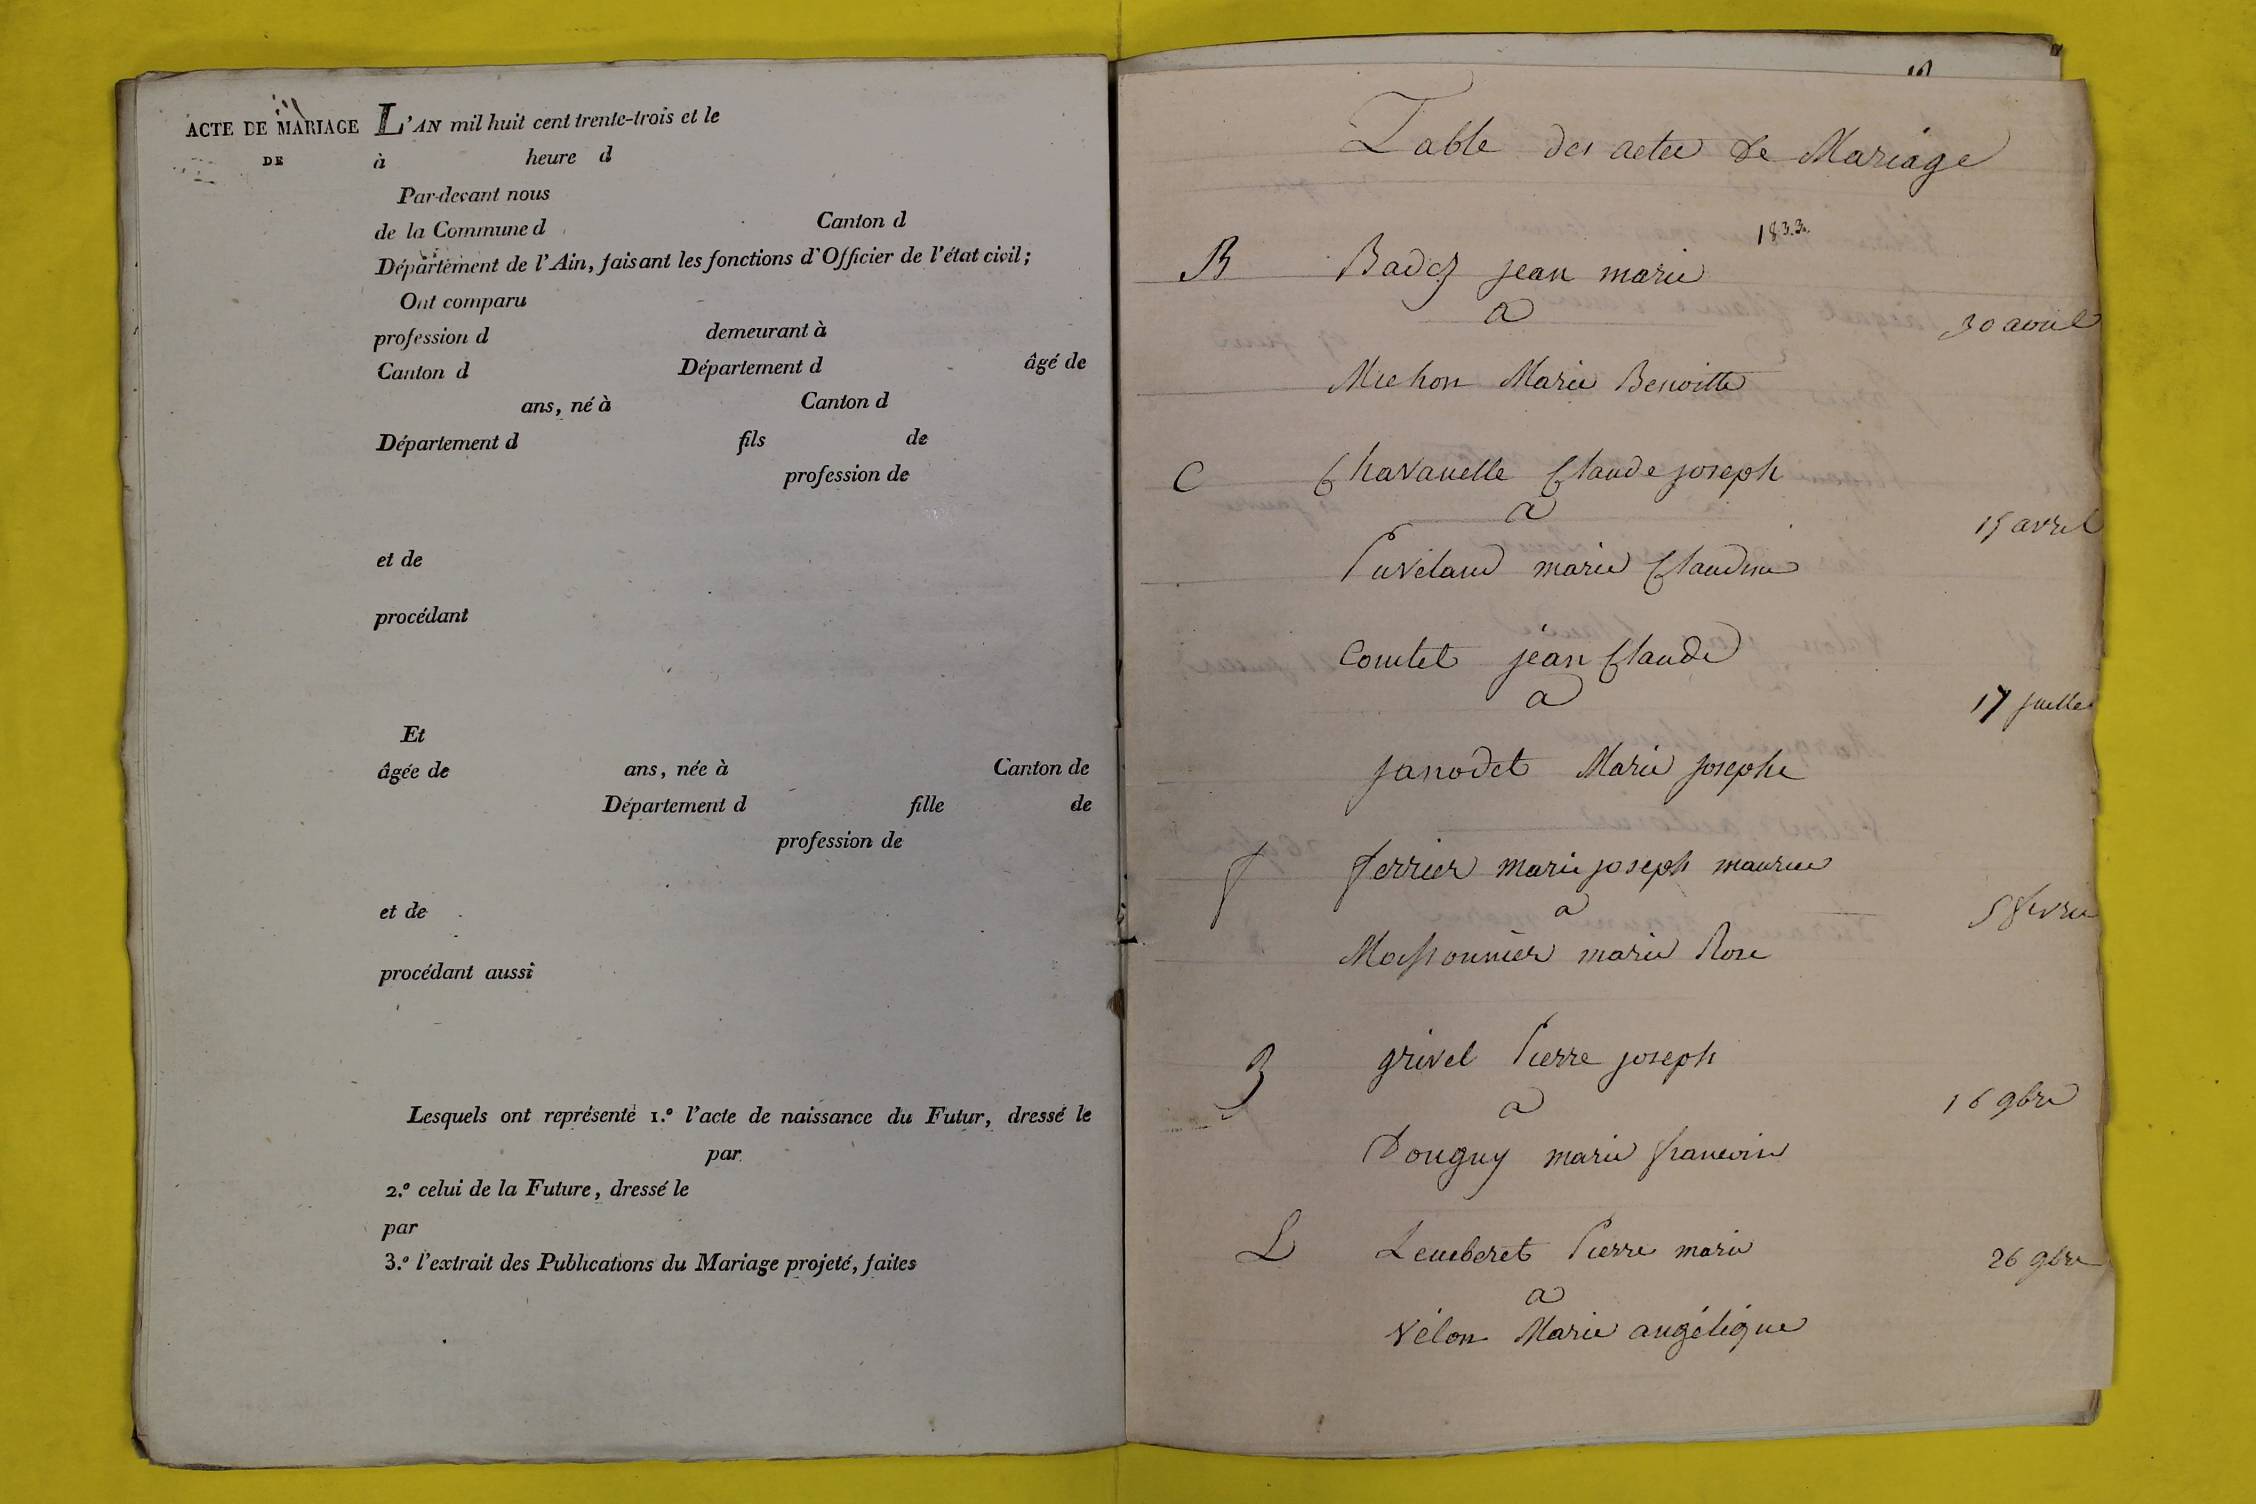 ACTE DE MARIAGE
DE
L'AN mil huit cent trente-trois et le
à heure d
Par-devant nous
de la Commune d Canton d
Département de l'Ain, faisant les fonctions d'Officier de l'état civil;
Ont comparu
profession d demeurant à
Canton d Département d âgé de
ans, né à Canton d
Département d fils de
profession de
et de
procédant
Et
âgée de ans, née à Canton de
Département d fille de
profession de
et de
procédant aussi
Lesquels ont représenté 1.º l'acte de naissance du Futur, dressé le
par
2.º celui de la Future, dressé le
par
3.º l'extrait des Publications du Mariage projeté, faites
Table des actes de Mariage
1833.
B Badez jean marie
a 30 avril
Michon Marie Benoitte
C Chavanelle Claude joseph
a 15 avril
Puvilland marie Claudine
Comtet jean Claude
a 17 juillet
janodet Marie josephe
f ferrier marie joseph maurice
a 5 fevrier
Moissonnier marie Rose
grivel Pierre joseph
a 16 9bre
Douguy marie francoise
L Pierre marie 26 9bre
a
Vélon Marie angélique